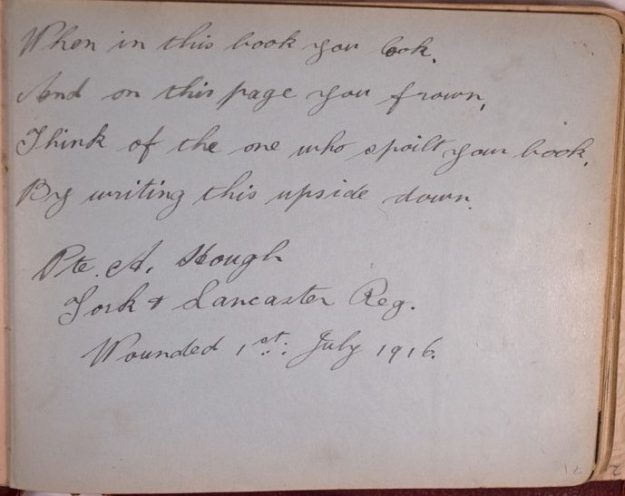 When in this book you look,
And on this page you frown,
Think of the one who spoilt your book,
By writing this upside down.
Pte. A. Hough
York & Lancaster Reg.
Wounded 1st: July 1916.